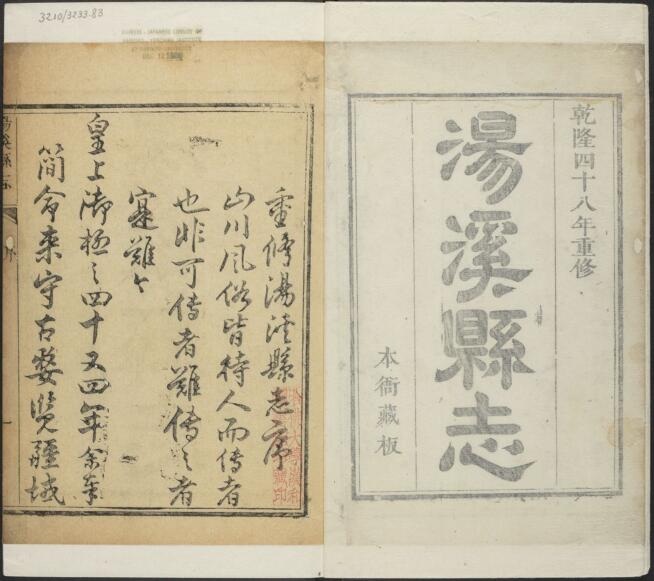 乾隆四十八年重修
湯溪縣志
本衙藏板
重修湯溪縣志序
山川風俗皆待人而傳者
也非可傳者難傳之者
寔難々
皇上御極之四十又四年余奉
簡命來守古婺覽疆域
序
3210/3233.83